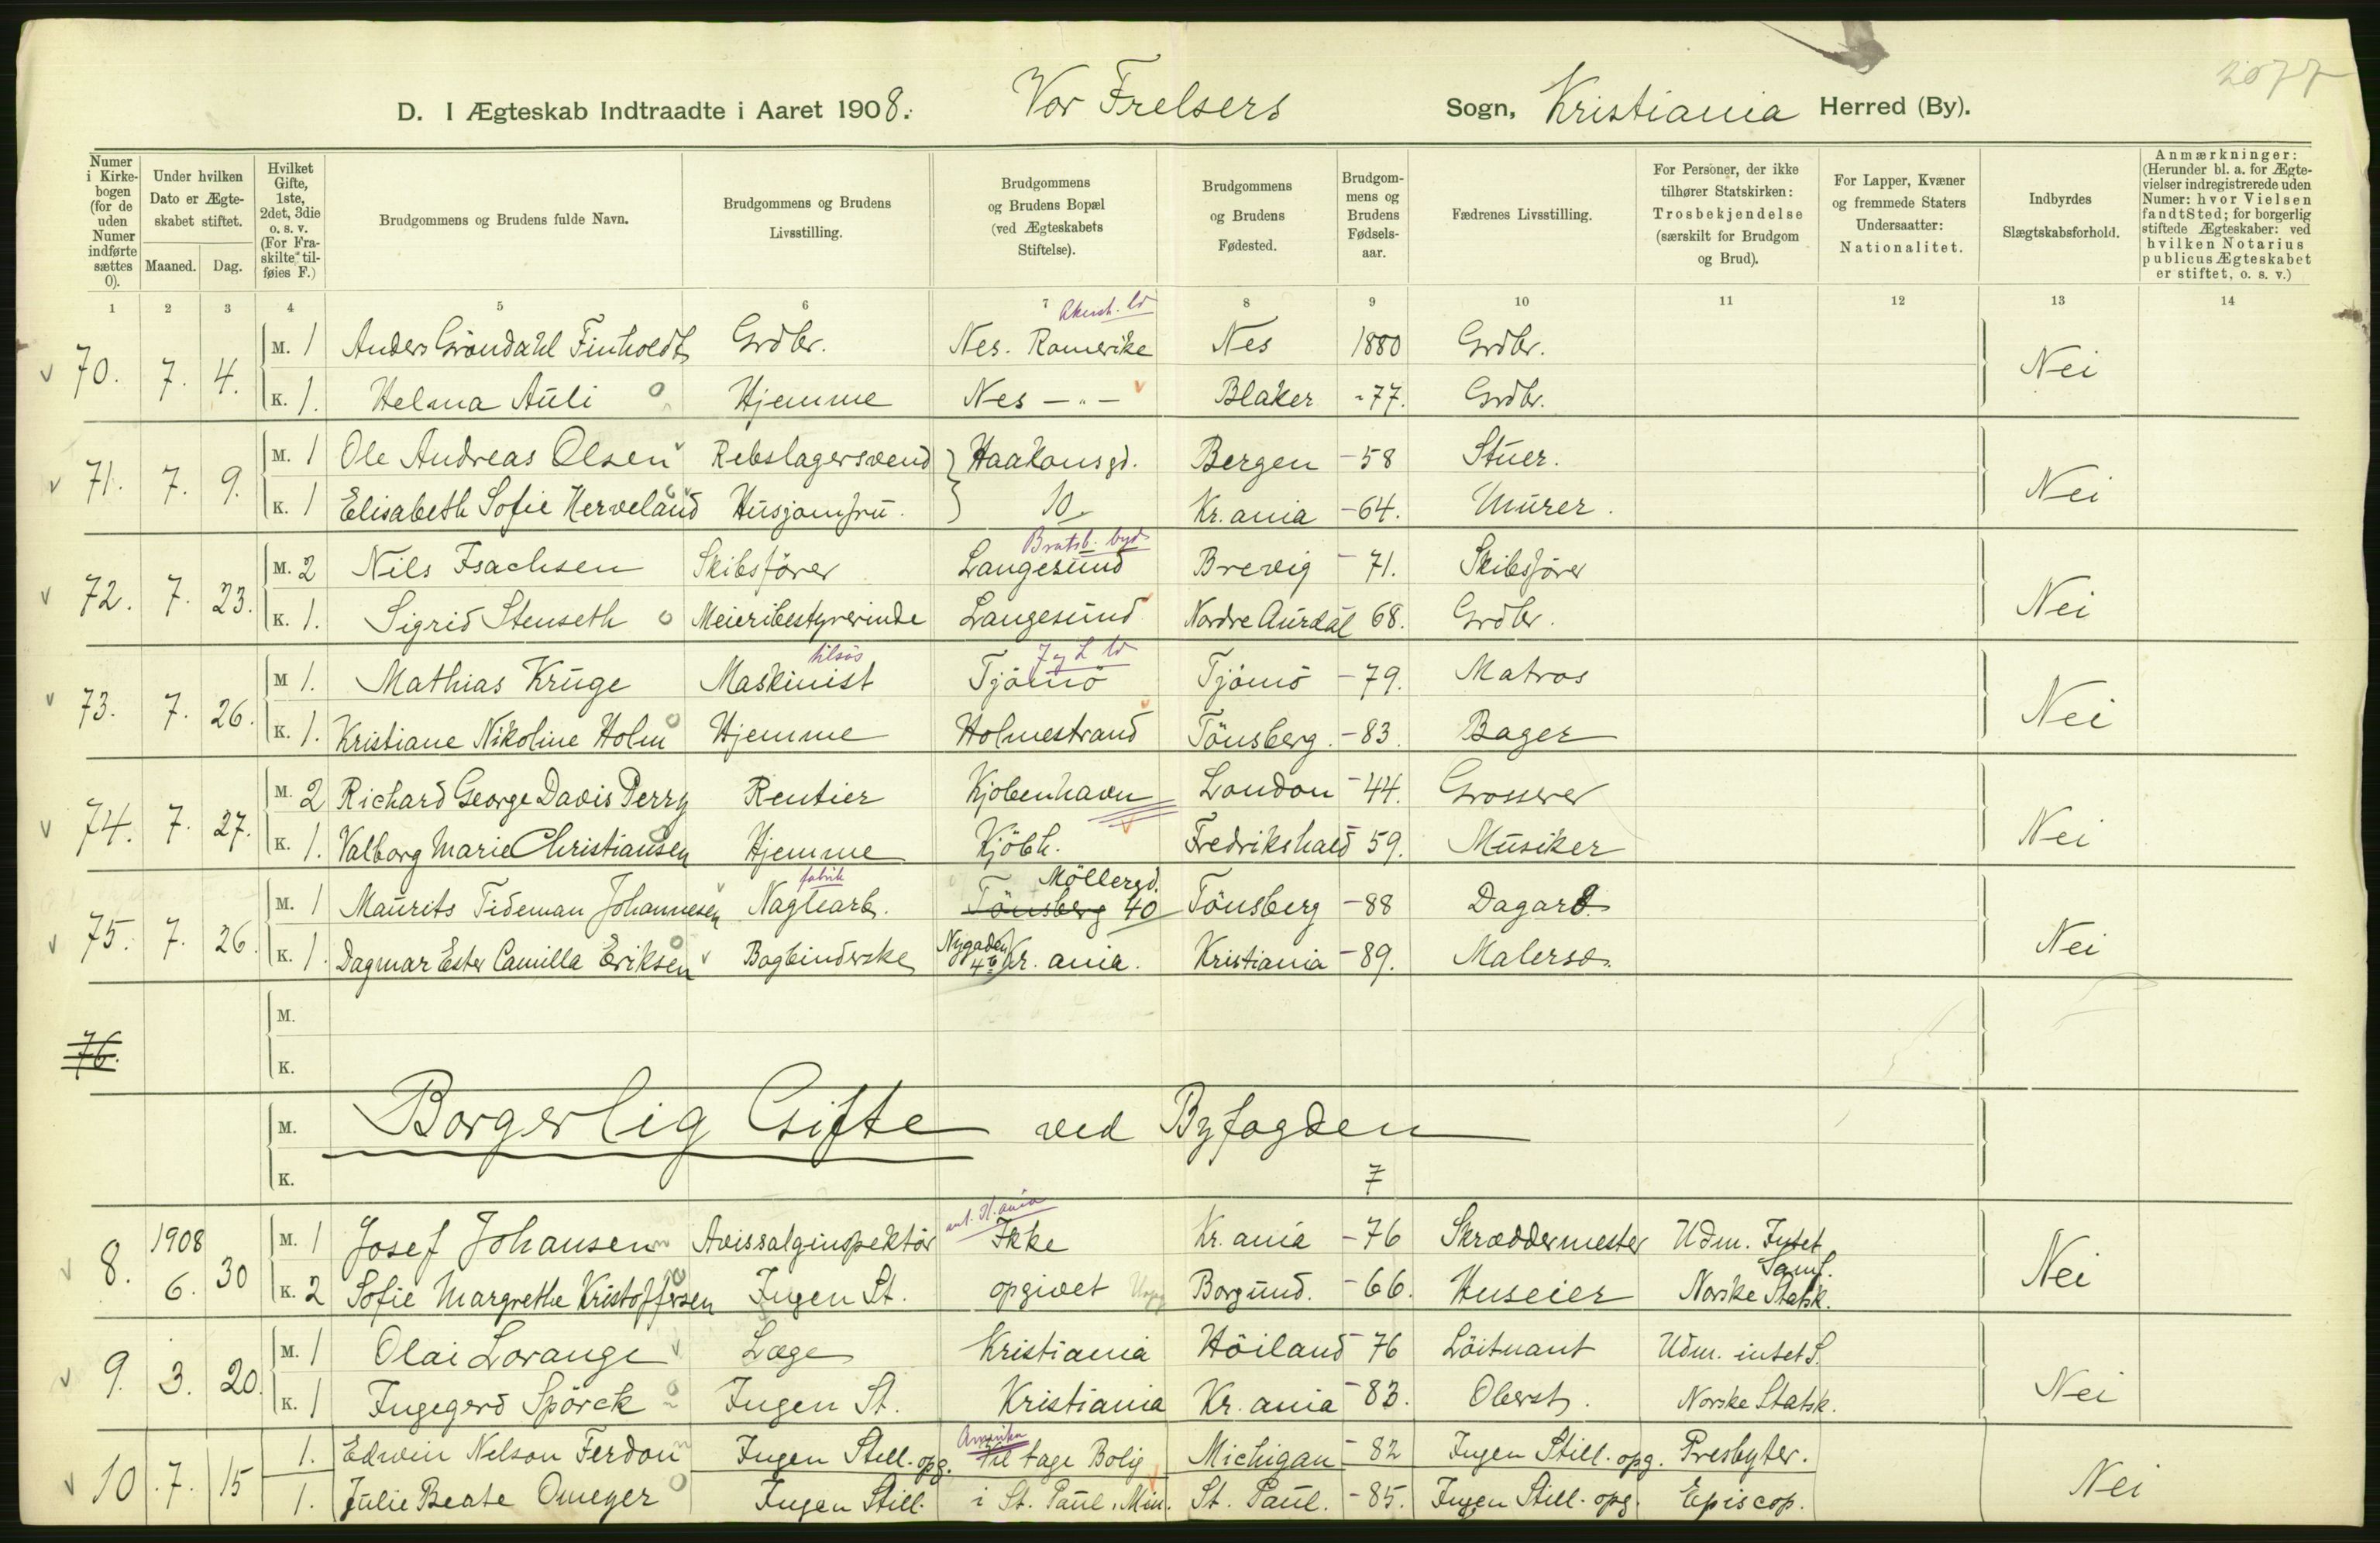 2077
D. I Ægteskab Indtraadte i Aaret 1908. Vor Frelsers Sogn, Kristiania Herred (By).
Numer i Kirkebogen (for de uden Numer indførte sættes 0).
Under hvilken Dato er Ægteskabet stiftet.
Maaned. Dag.
Hvilket Gifte, 1ste, 2det, 3die o. s. v. (For Fraskilte tilføies F.)
Brudgommens og Brudens fulde Navn.
Brudgommens og Brudens Livsstilling.
Brudgommens og Brudens Bopæl (ved Ægteskabets Stiftelse).
Brudgommens og Brudens Fødested.
Brudgommens og Brudens Fødselsaar.
Fædrenes Livsstilling.
For Personer, der ikke tilhører Statskirken: Trosbekjendelse (særskilt for Brudgom og Brud).
For Lapper, Kvæner og fremmede Staters Undersaatter: Nationalitet.
Indbyrdes Slægtskabsforhold.
Anmærkninger: (Herunder bl. a. for Ægtevielser indregistrerede uden Numer: hvor Vielsen fandt Sted; for borgerlig stiftede Ægteskaber: ved hvilken Notarius publicus Ægteskabet er stiftet, o. s. v.)
1 2 3 4 5 6 7 8 9 10 11 12 13 14
Akersh.
70. 7. 4. M. 1 Anders Gröndahl Finholdt Grdbr. Nes. Romerike Nes 1880 Grdbr. Nei
K. 1. Helma Auli Hjemme Nes - " - Blaker - 77. Grdbr.
71. 7. 9. M. 1 Ole Andreas Olsen Rebslagersvend Haakonsgd. Bergen - 58 Stuer. Nei
K. 1 Elisabeth Sofie Herveland Husjomfru. 10. Kr. ania - 64. Murer.
Bratsb.
72. 7. 23. M. 2 Nils Isachsen Skibsförer Langesund Brevig - 71. Skibsförer Nei
K. 1. Sigrid Stenseth Meieribestyrerinde Langesund Nordre Aurdal 68. Grdbr.
tilsös J og L
73. 7. 26. M 1. Mathias Kruge Maskinist Tjömö Tjömö - 79. Matros Nei
K. 1. Kristiane Nikoline Holm Hjemme Holmestrand Tönsberg. - 83. Bager
74. 7. 27. M. 2 Richard George Davis Perry Rentier Kjobenhavn London - 44. Grosserer Nei
K. 1. Valborg Marie Christiansen Hjemme Kjöbh. Fredrikshald 59. Musiker
fabrik Möllergd.
75. 7. 26. M. 1 Maurits Tideman Johannesen Naglearb. Tönsberg 40 Tönsberg - 88 Dagarb. Nei
K. 1. Dagmar Ester Camilla Eriksen Bogbinderske Nygaden 4b Kr. ania. Kristiania - 89. Malersv.
76. M.
K.
M. Borgerlig Gifte ved Byfogden
K. 7
ant. K. ania
8. 1908 6. 30 M. 1 Josef Johansen Avissalginspektör Ikke Kr. ania - 76 Skræddermester Udm. Intet Samf. Nei
K. 2 Sofie Margrethe Kristoffersen Ingen St. opgivet Borgund. - 66. Huseier Norske Statsk.
9. 3. 20. M. 1 Olai Lorange Læge Kristiania Höiland - 76 Löitnant Udm. intet S. Nei
K. 1 Ingegerd Spörck Ingen St. Kristiania Kr. ania - 83. Oberst. Norske Statsk.
Amerika
10 7. 15 1. Edwin Nelson Ferdon Ingen Still. opg. Vil tage Bolig Michigan - 82 Ingen Still. opg. Presbyter. Nei
1. Julie Beate Omeyer Ingen Still. i St. Paul. Min. St. Paul. - 85. Ingen Still. opg. Episcop.